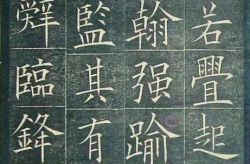 若疊起
翰强踰
監其有
臨鋒